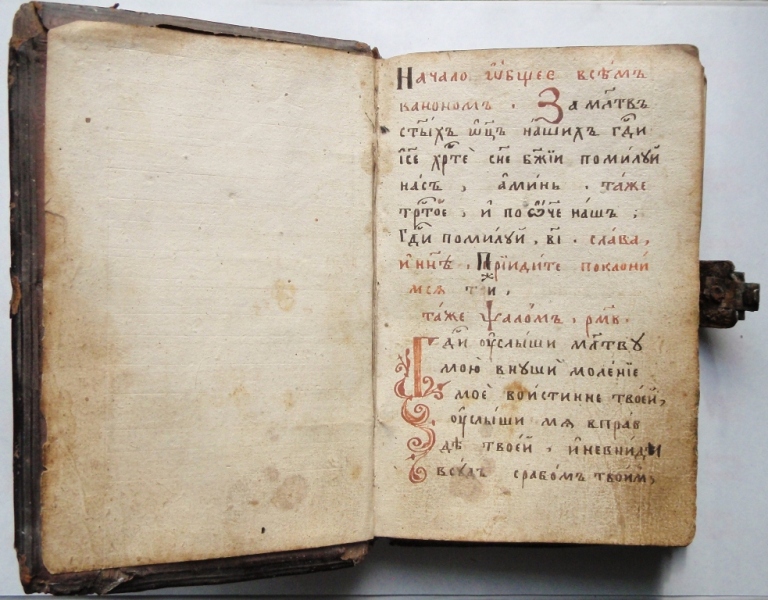 Начало ѡ҆́бщее всѣ́мъ
каноно́мъ . За мл҃твъ
ст҃ы́хъ ѻ҆ц҃ъ на́шихъ гдⷭ҇и
і҆с҃е хрⷭ҇тѐ сн҃е бж҃їи поми́луй
на́съ , а҆ми́нь . та́же
трⷭ҇то́е , и҆ по ѻ҆́ч҃е на́шъ ;
Гдⷭ҇и поми́луй , в҃і . сла́ва ,
и҆ нн҃ѣ . Прїиди́те поклони́
мсѧ три́ж ,
та́же Ѱало́мъ , рм҃в .
Гдⷭ҇и ᲂу҆слы́ши мл҃тву
мою̀ внушѝ моле́нїе
моѐ во и҆́стинне твое́й ,
ᲂу҆слы́ши мѧ в пра́в
дѣ твое́й , и҆ не вни́ди
в су́дъ с рабо́мъ твои́м ,